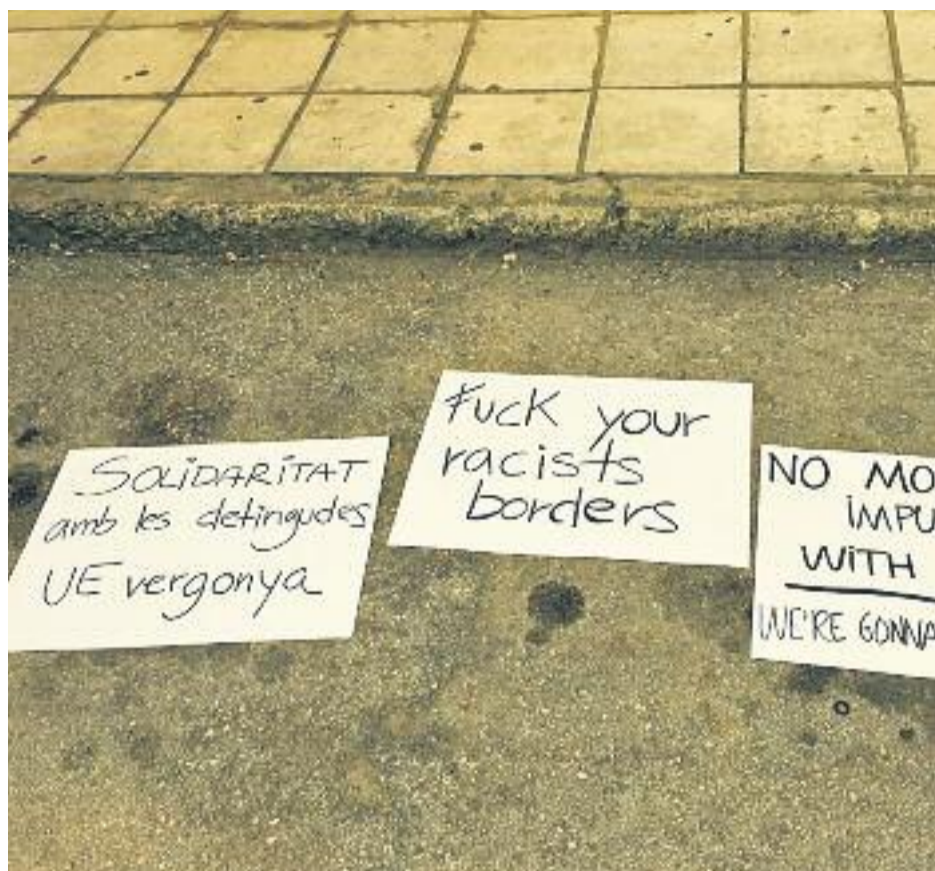 SOLiDARiTAT
amb les detingudes
UE vergonya
Fuck your
racists
borders
NO MO
iMPU
WiTH
WE'RE GONNA